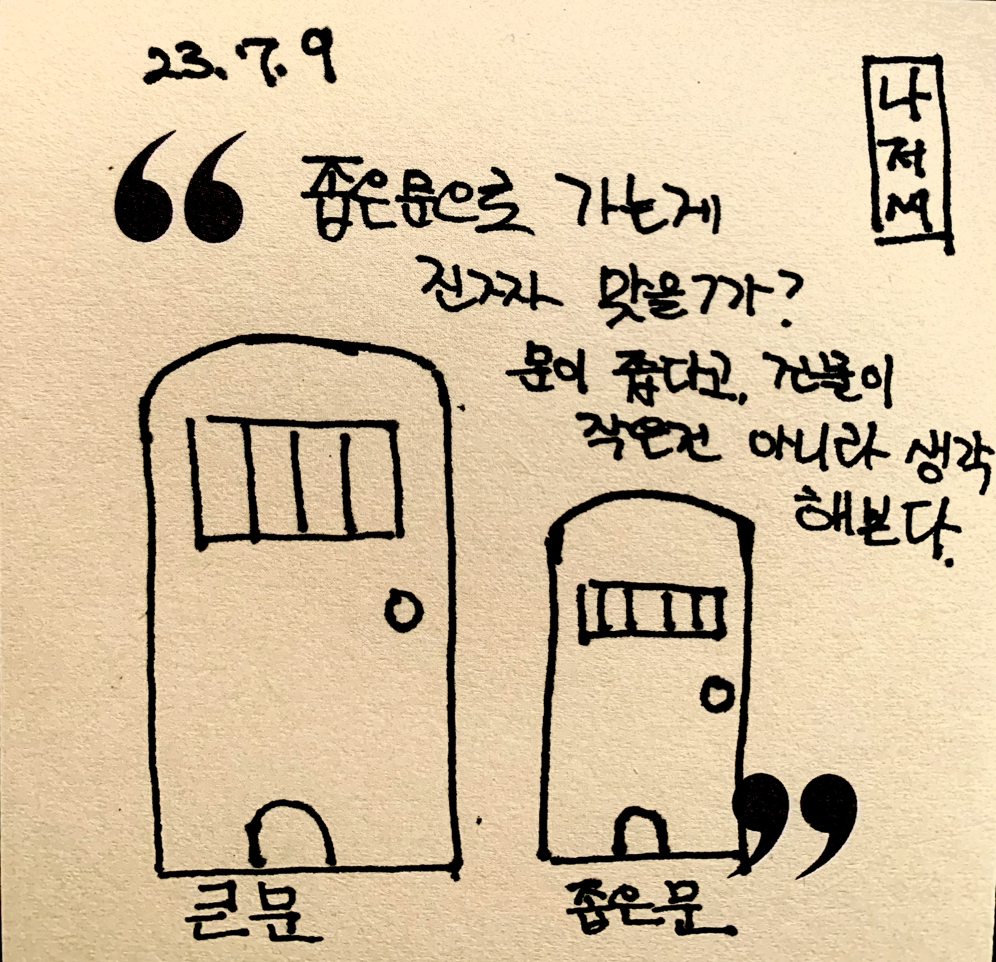 23.7.9
나
저
M
“ 좁은문으로 가는게
진짜 맞을까?
문이 좁다고, 건물이
작은건 아니라 생각
해본다.
”
큰문
좁은문.